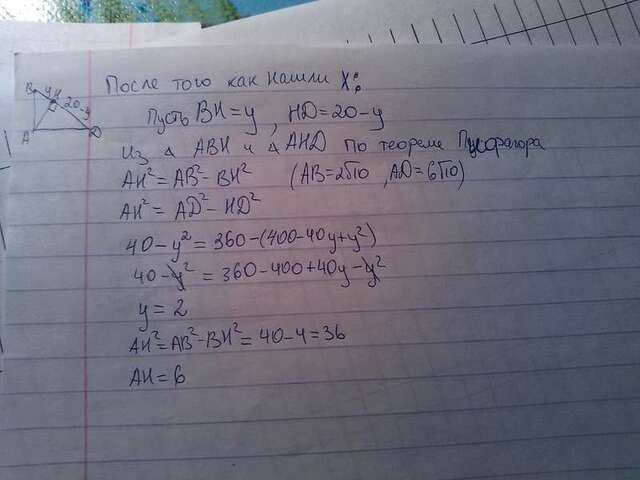 После того как нашли X:
B y H 20-y
A D
Пусть BH=y , HD=20-y
Из △ ABH и △ AHD по теореме Пифагора
AH²=AB²-BH² (AB=2√10 , AD=6√10)
AH²= AD²-HD²
40-y²=360-(400-40y+y²)
40-y² = 360-400+40y-y²
y=2
AH²=AB²-BH²=40-4=36
AH=6